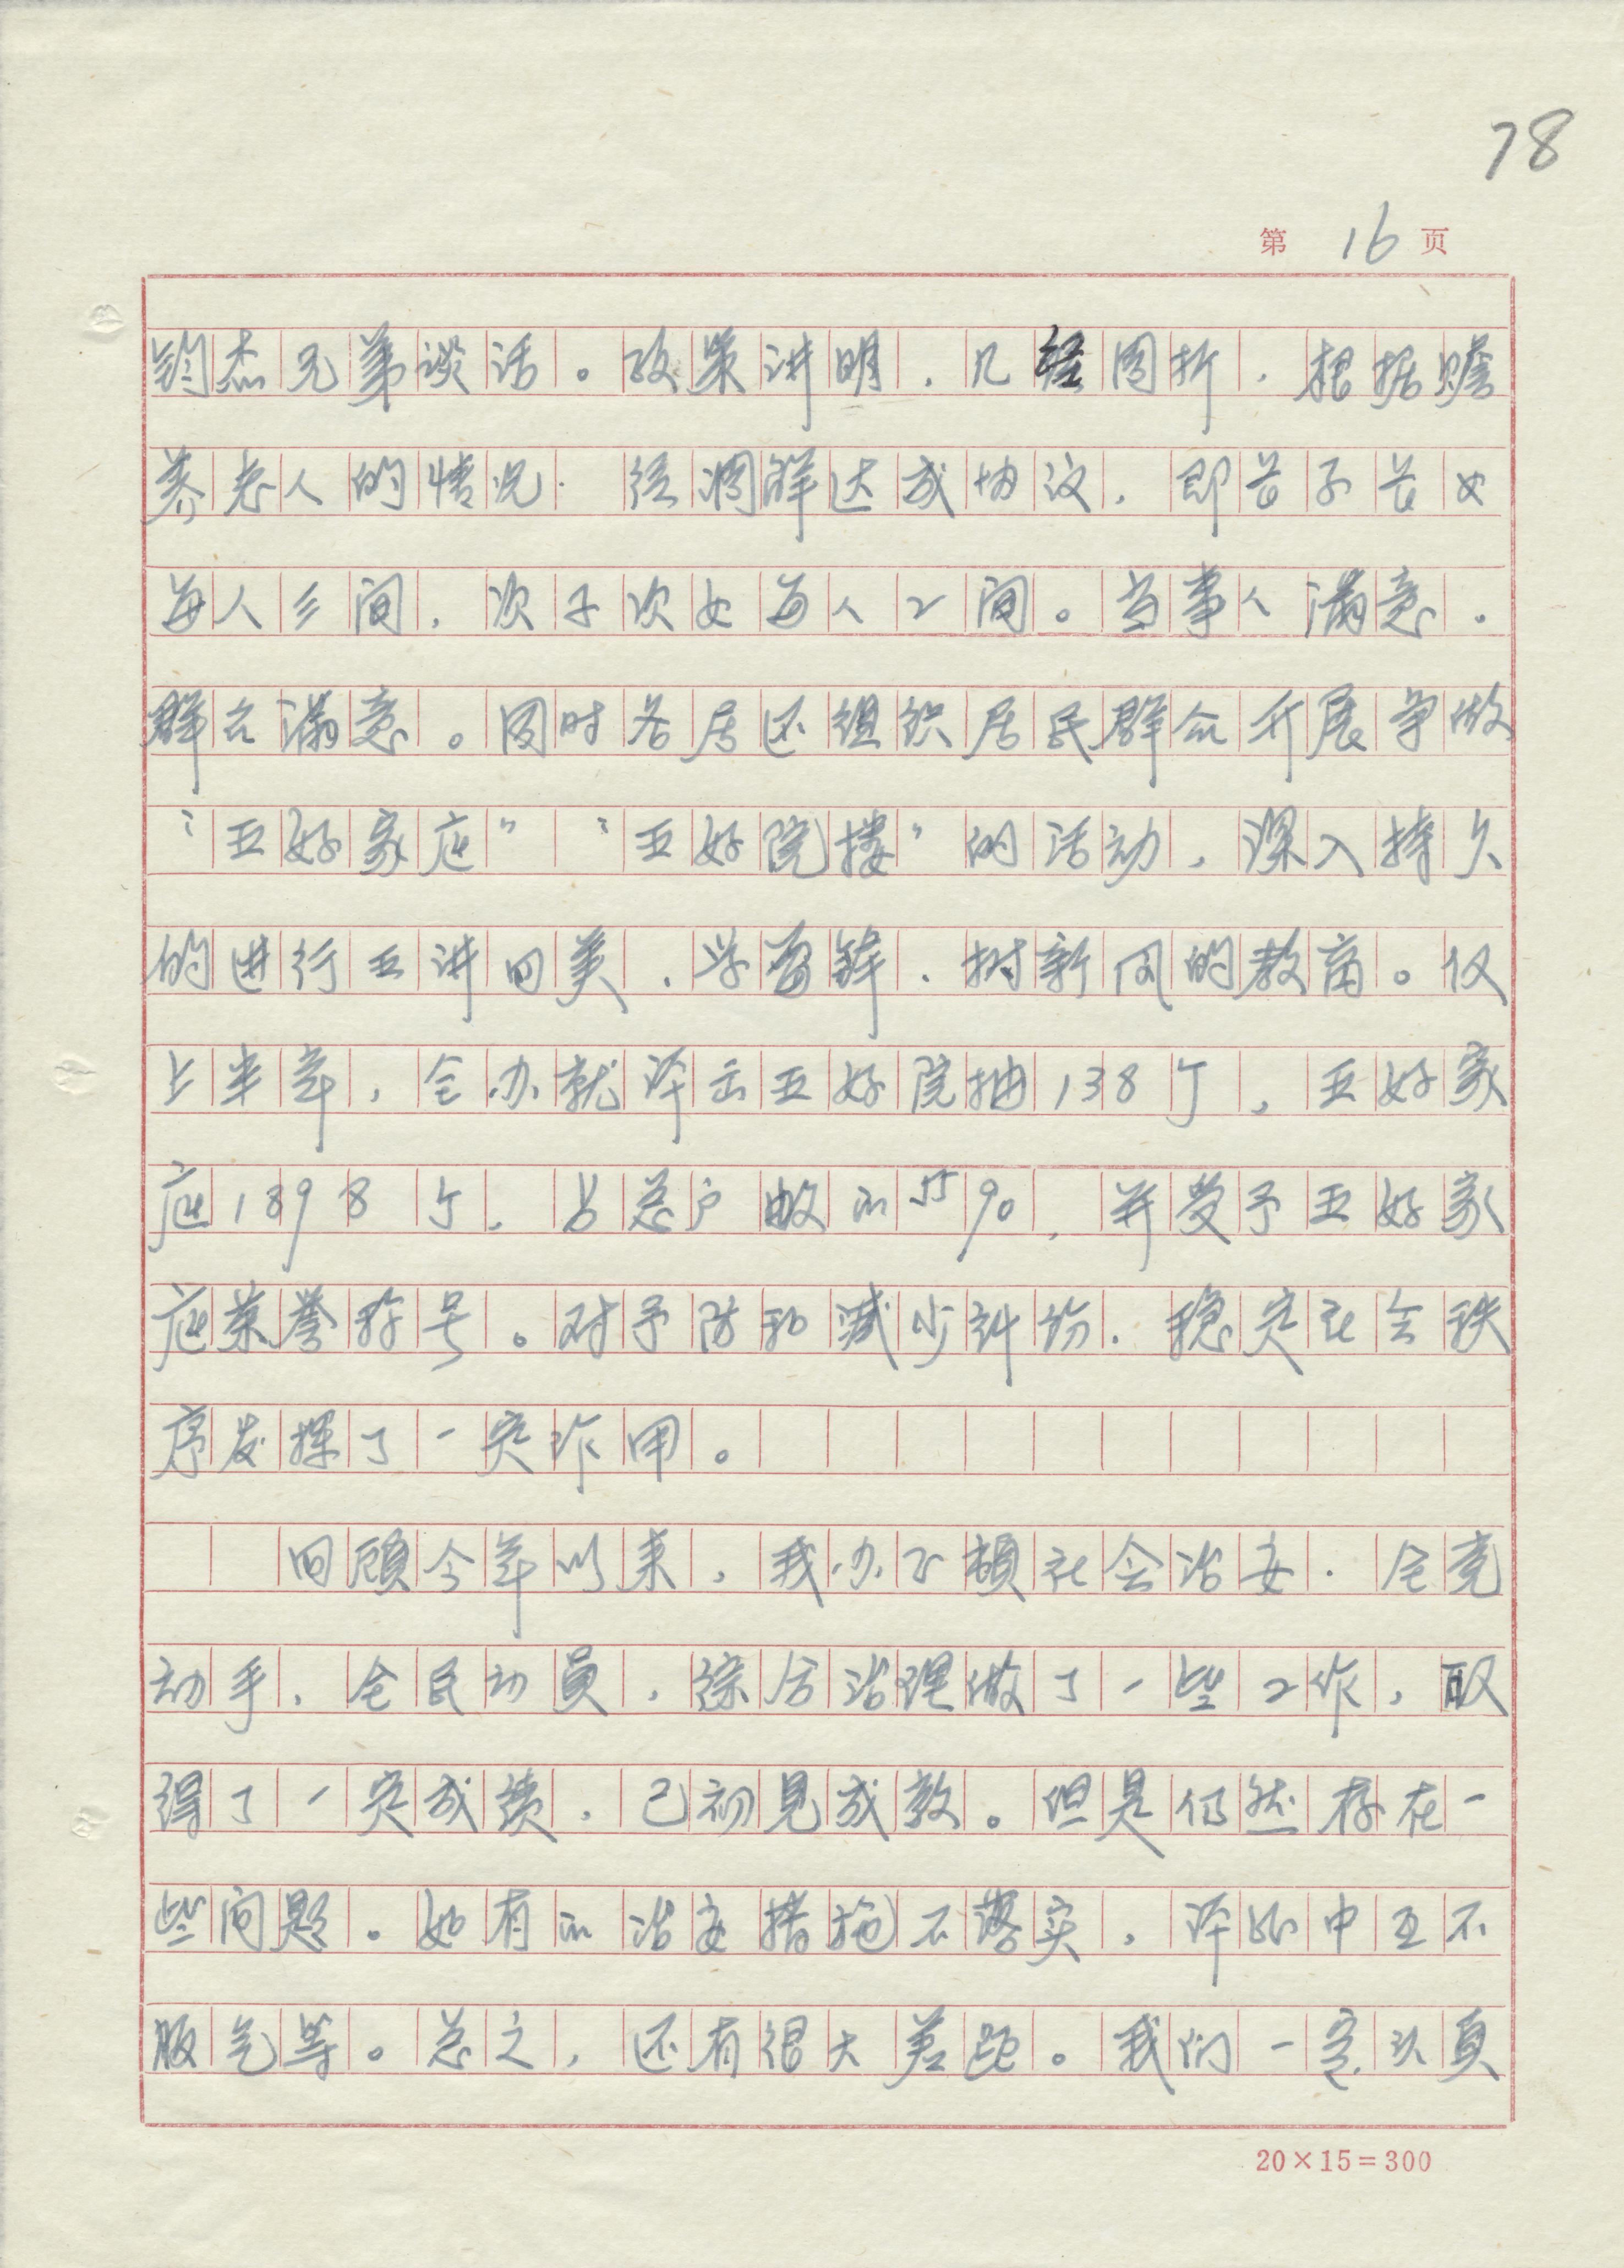 78
第 16 页
钧杰兄弟谈话。政策讲明，几经周折，根据赡
养老人的情况，经调解达成协议，即长子长女
每人三间，次子次女每人2间。当事人满意，
群众满意。同时各居还组织居民群众开展争做
“五好家庭”“五好院楼”的活动，深入持久
的进行五讲四美、学雷锋、树新风的教育。仅
上半年，全办就评出五好院抽138个，五好家
庭1898个，占总户数的55%，并受予五好家
庭荣誉称号。对予防和减少纠纷，稳定社会秩
序发挥了一定作用。
回顾今年以来，我办正顿社会治安，全党
动手，全民动员，综合治理做了一些工作，取
得了一定成绩，已初见成效。但是仍然存在一
些问题。如有的治安措施不落实，评比中互不
服气等。总之，还有很大差距。我们一定认真
20×15=300